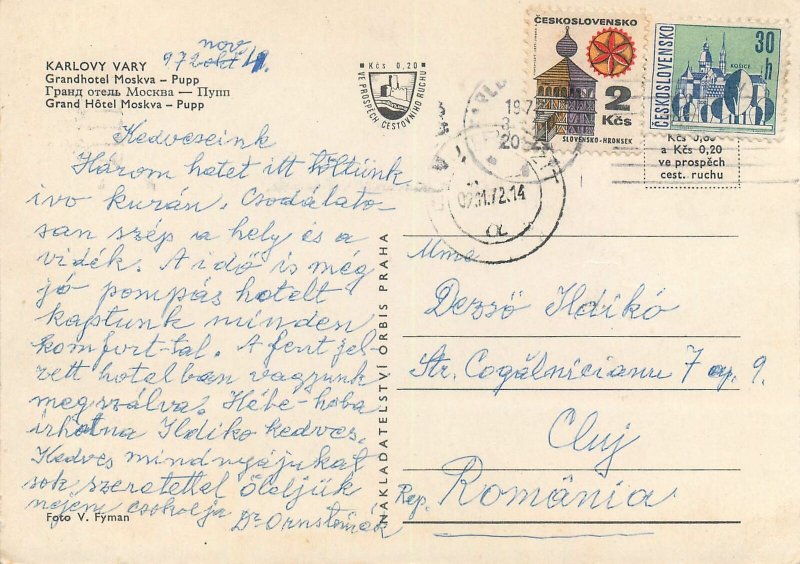 KARLOVY VARY
Grandhotel Moskva – Pupp
Гранд отель Москва — Пупп
Grand Hôtel Moskva – Pupp
nov
972
Kedveseink
Három hetet itt töltünk
ivo kurán. Csodálato-
san szép a hely és a
vidék. A idő is még
jó pompás hotelt
kaptunk minden
komfort-tal. A fent jel-
zett hotelban vagyunk
megszálva. Hébe-hoba
irhatna Ildiko kedves.
Kedves mindnyájukat
sok szeretettel öleljük
nejem csokolja
Dr Ornstein
Foto V. Fyman
Kčs 0,20
VE PROSPĚCH CESTOVNÍHO RUCHU
NAKLADATELSTVÍ ORBIS PRAHA
ČESKOSLOVENSKO
2
Kčs
SLOVENSKO - HRONSEK
ČESKOSLOVENSKO
30
h
KOŠICE
20
72.14
Kčs 0,60
a Kčs 0,20
ve prospěch
cest. ruchu
Mme
Dezső Ildikó
Str. Cogălnicianu 7 ap. 9.
Cluj
Rep. România